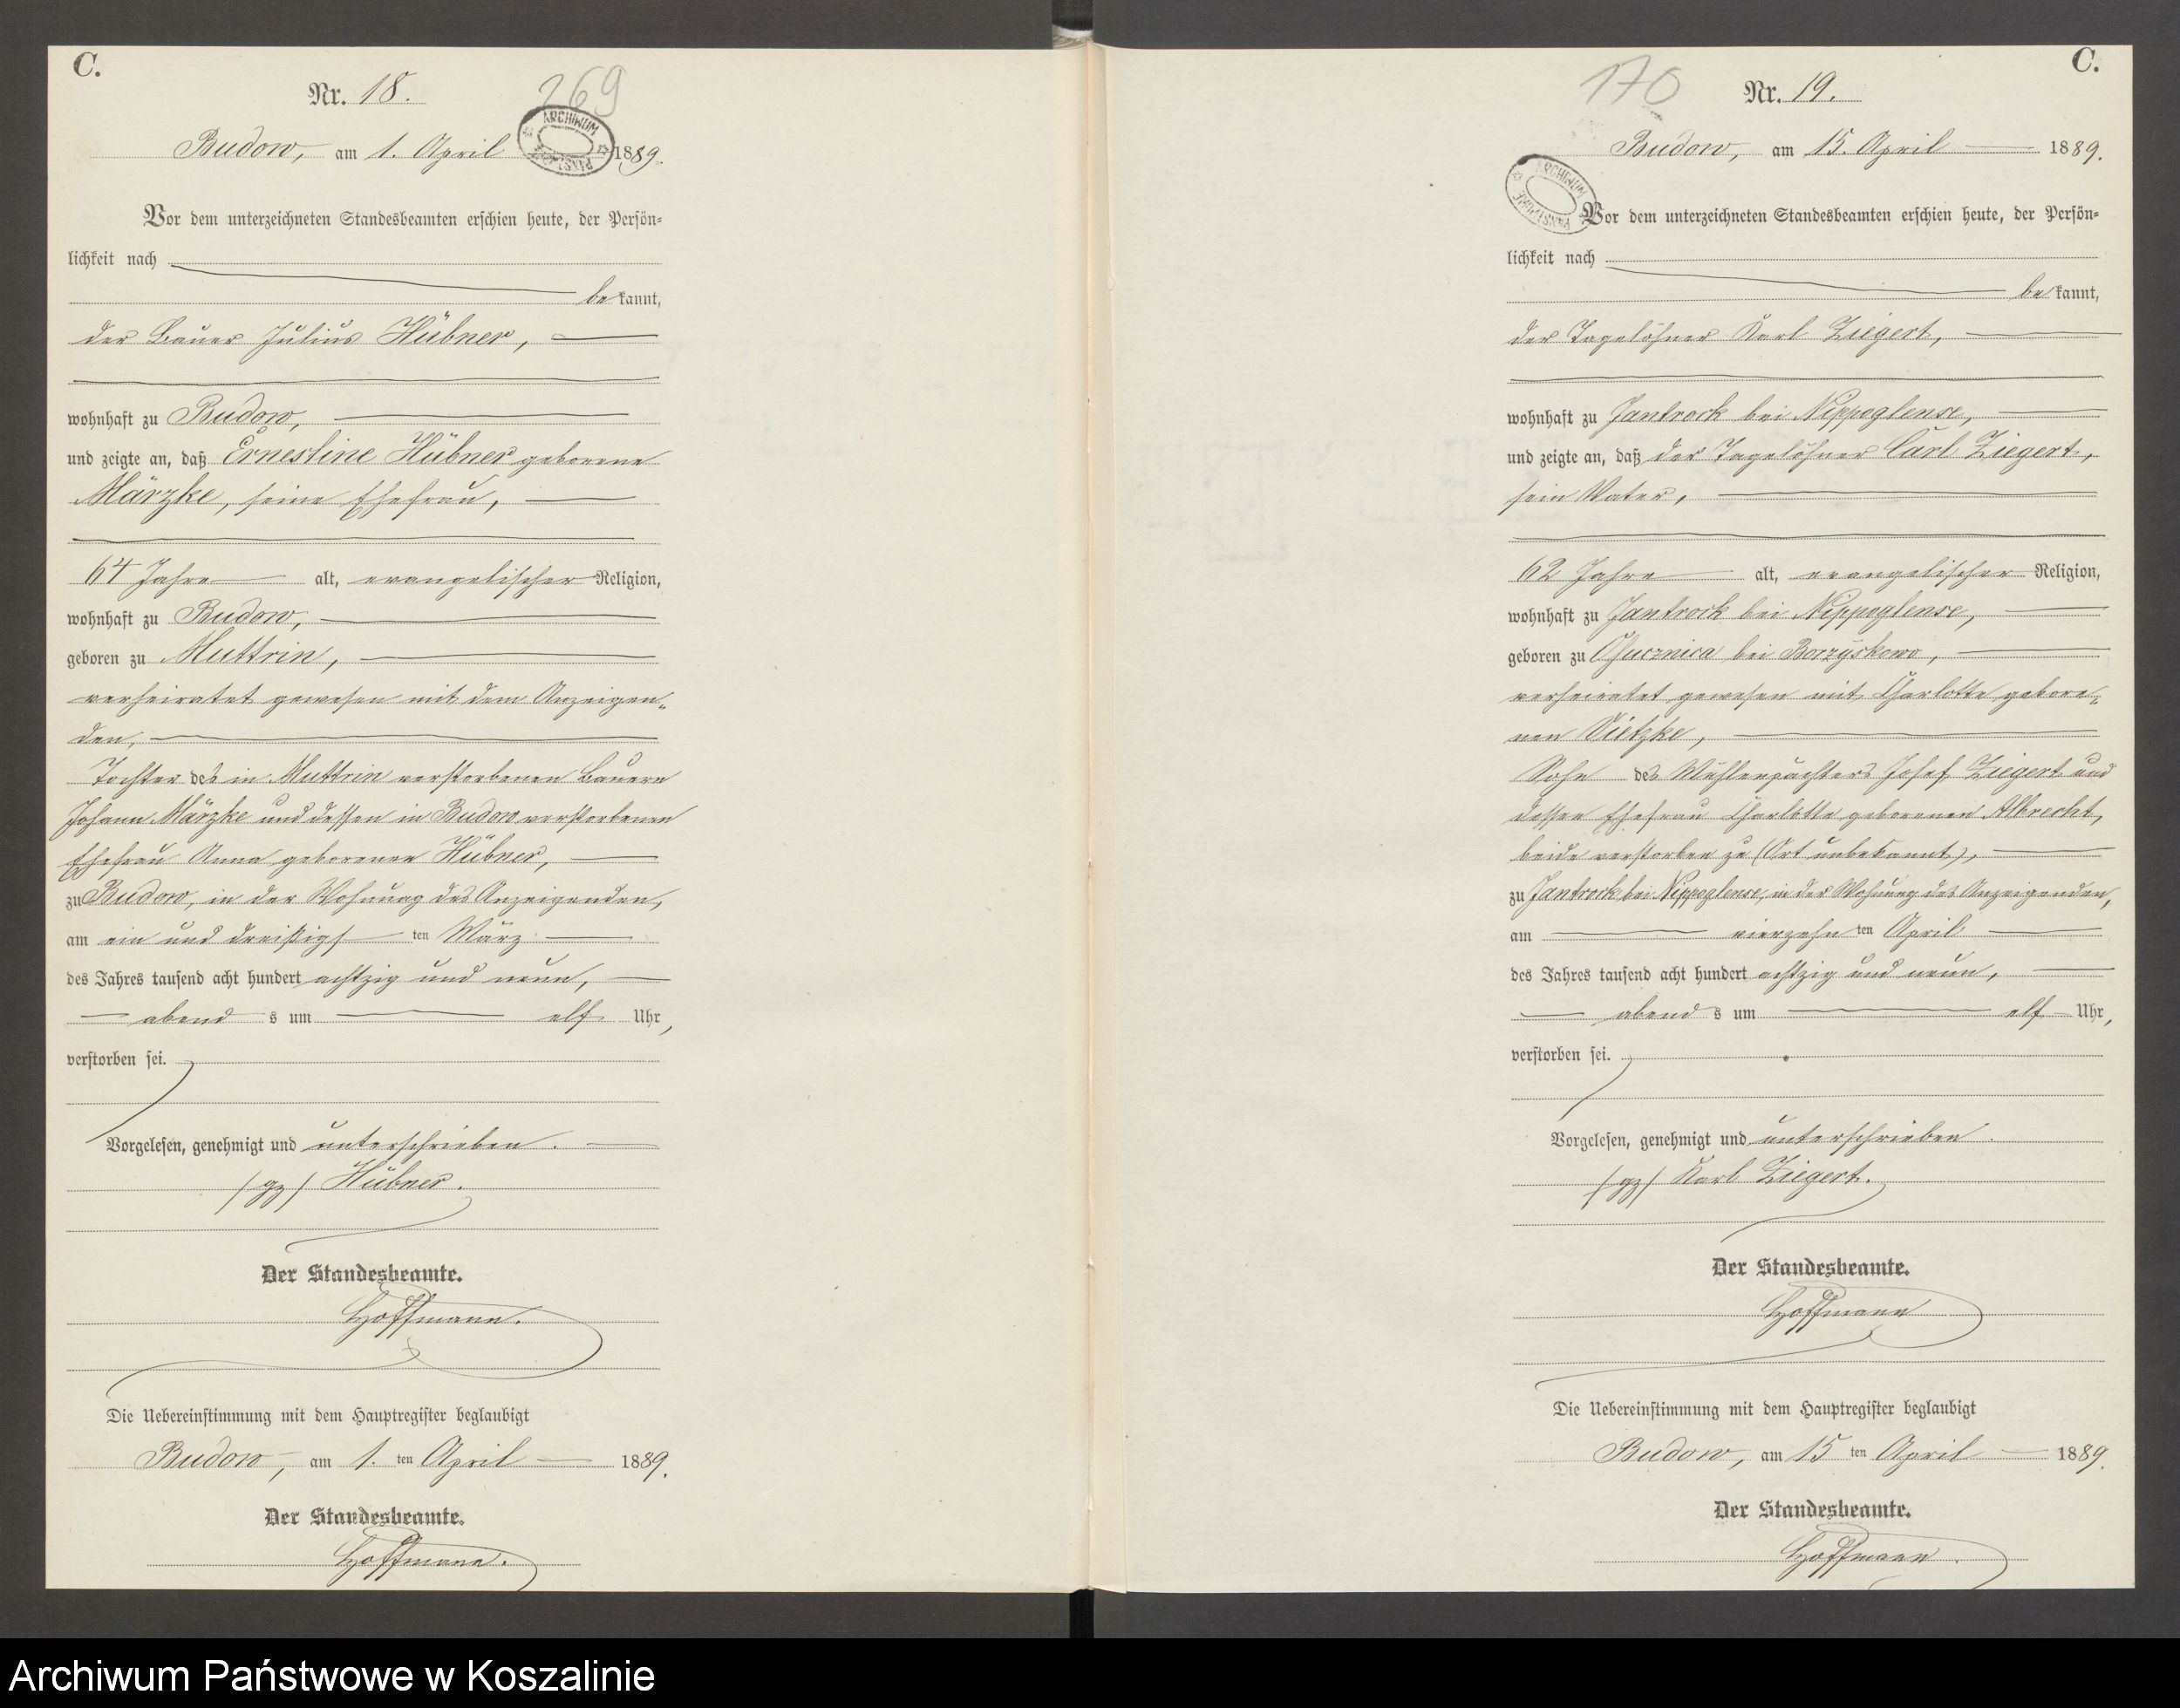 C.
Nr. 18.
269
ARCHIWUM
Budow, am 1. April 1889.
Vor dem unterzeichneten Standesbeamten erschien heute, der Persön-
lichkeit nach
bekannt,
der Bauer Julius Hübner,
wohnhaft zu Budow,
und zeigte an, daß Ernestine Hübner geborene
Märzke, seine Ehefrau,
64 Jahre alt, evangelischer Religion,
wohnhaft zu Budow,
geboren zu Muttrin,
verheiratet gewesen mit dem Anzeigen-
den,
Tochter des in Muttrin verstorbenen Bauern
Johann Märzke und dessen in Budow verstorbenen
Ehefrau Anna geborenen Hübner,
zu Budow, in der Wohnung des Anzeigenden,
am ein und dreißigsten März
des Jahres tausend acht hundert achtzig und neun,
abends um elf Uhr,
verstorben sei.
Vorgelesen, genehmigt und unterschrieben.
(gz) Hübner.
Der Standesbeamte.
Hoffmann.
Die Uebereinstimmung mit dem Hauptregister beglaubigt
Budow, am 1. ten April 1889.
Der Standesbeamte.
Hoffmann.
C.
170
Nr. 19.
Budow, am 15. April 1889.
ARCHIWUM
Vor dem unterzeichneten Standesbeamten erschien heute, der Persön-
lichkeit nach
bekannt,
der Tagelöhner Karl Ziegert,
wohnhaft zu Jantrock bei Nippoglense,
und zeigte an, daß der Tagelöhner Carl Ziegert,
sein Vater,
62 Jahre alt, evangelischer Religion,
wohnhaft zu Jantrock bei Nippoglense,
geboren zu bei Borzyskowo,
verheiratet gewesen mit Charlotte gebore-
nen Vietzke,
Sohn des Mühlenpächters Josef Ziegert und
dessen Ehefrau Charlotte geborenen Albrecht,
beide verstorben zu (Ort unbekannt),
zu Jantrock bei Nippoglense, in der Wohnung des Anzeigenden,
am vierzehnten April
des Jahres tausend acht hundert achtzig und neun,
abends um elf Uhr,
verstorben sei.
Vorgelesen, genehmigt und unterschrieben.
(gz) Karl Ziegert.
Der Standesbeamte.
Hoffmann
Die Uebereinstimmung mit dem Hauptregister beglaubigt
Budow, am 15 ten April 1889.
Der Standesbeamte.
Hoffmann.
Archiwum Państwowe w Koszalinie